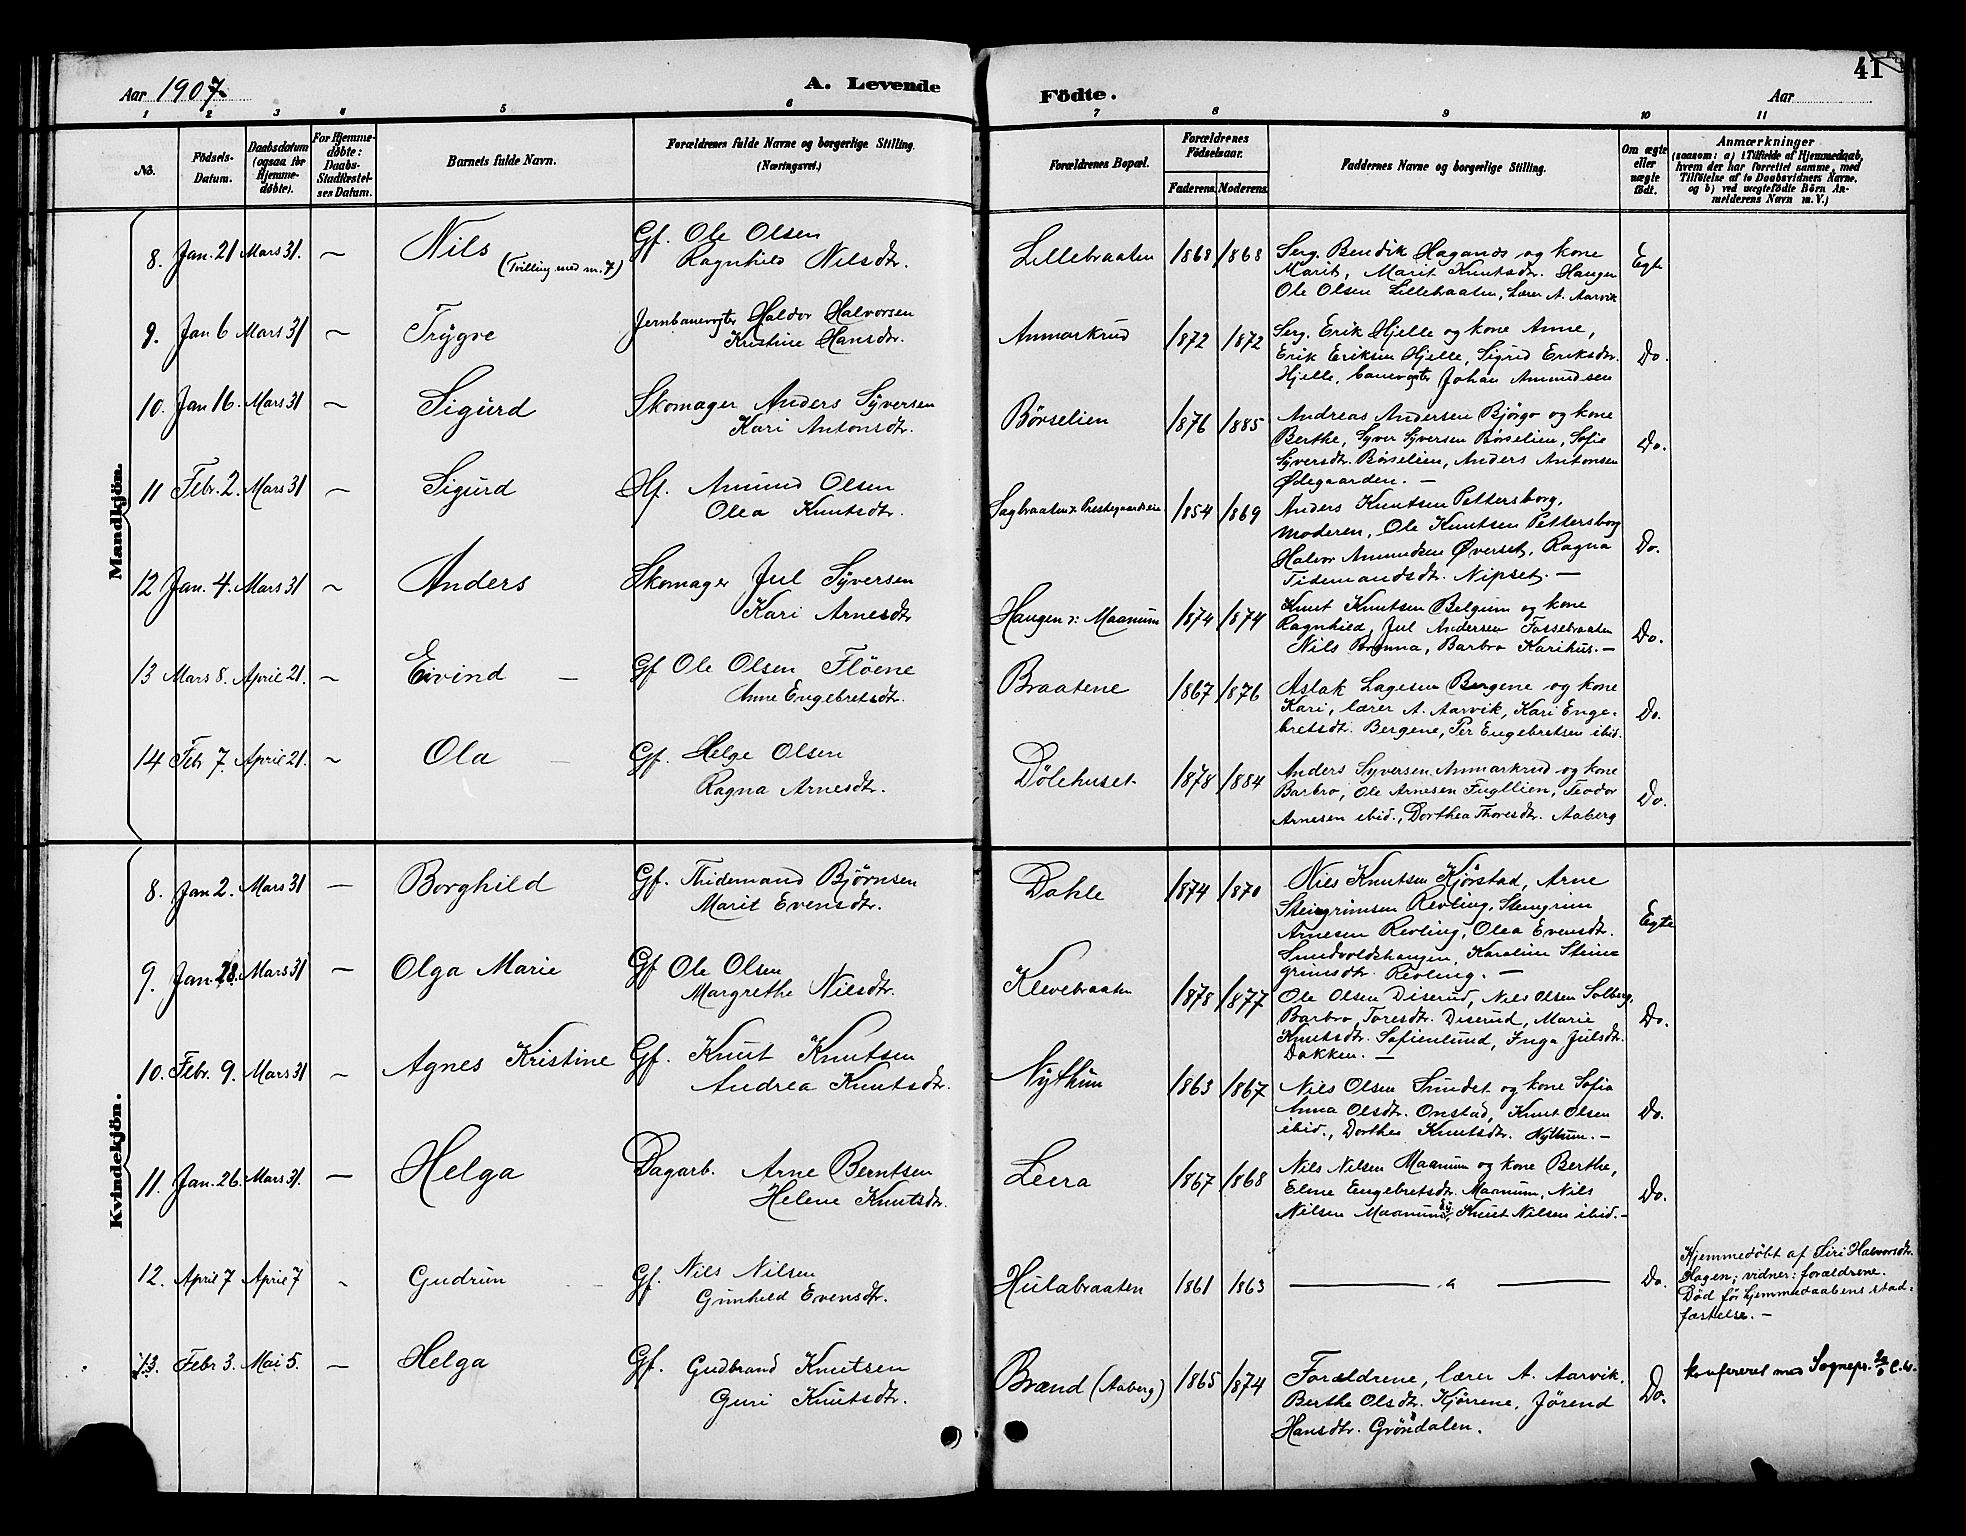 Aar 1907.
A. Levende
Födte.
Aar
41
1
2
3
4
5
6
7
8
9
10
11
No.
Födsels-
Datum.
Daabsdatum
(ogsaa for
Hjemme-
döbte).
For Hjemme-
döbte:
Daabs-
Stadfæstel-
ses Datum.
Barnets fulde Navn.
Forældrenes fulde Navne og borgerlige Stilling.
(Næringsvei.)
Forældrenes Bopæl.
Forældrenes
Födselsaar.
Faderens. Moderens.
Faddernes Navne og borgerlige Stilling.
Om ægte
eller
uægte
födt.
Anmærkninger
(saasom: a) i Tilfælde af Hjemmedaab,
hvem der har forrettet samme, med
Tilföielse af to Daabsvidners Navne,
og b) ved uægtefödte Börn An-
melderens Navn m. V.)
Mandkjön.
8. Jan. 21 Mars 31. – Nils (Tvilling med nr. 7)
Gf. Ole Olsen
Ragnhild Nilsdtr.
Lillebraaten 1868 1868
Serg. Bendik Hagands og kone
Marit, Marit Knutsdtr. Haugen
Ole Olsen Lillebraaten, Lærer A. Aarvik
Egte
9. Jan 6 Mars 31 – Trygve
Jernbanevogter Haldor Halvorsen
Kristine Hansdtr.
Anmarkrud 1872 1872
Serg. Erik Hjelle og kone Anne,
Erik Eriksen Hjelle, Sigrid Eriksdtr.
Hjelle, banevogter Johan Amundsen
Do.
10. Jan 16. Mars 31 – Sigurd
Skomager Anders Syversen
Kari Antonsdtr.
Børselien 1876 1885
Andreas Andersen Bjørgo og kone
Berthe, Syver Syversen Børselien, Sofie
Syversdtr. Børselien, Anders Antonsen
Ødegaarden. –
Do.
11 Febr. 2. Mars 31 – Sigurd
Hf. Amund Olsen
Olea Knutsdtr.
Sagbraaten v. Prestegaardseie 1854 1869
Anders Knutsen Pettersborg,
moderen, Ole Knutsen Pettersborg
Halvor Amundsen Øverset, Ragna
Tidemandsdtr. Nipset. –
Do.
12 Jan. 4. Mars 31 – Anders
Skomager Jul Syversen
Kari Arnesdtr
Haugen v: Maanum 1874 1874
Knut Knutsen Belgum og kone
Ragnhild, Jul Andersen Fossebraaten
Nils Bromma, Barbro Karihus. –
Do.
13 Mars 8. April 21. – Eivind –
Gf Ole Olsen Fløene
Anne Engebretsdtr.
Braatene 1867 1876
Aslak Lagesen Bergene og kone
Kari, lærer A. Aarvik, Kari Enge-
bretsdt. Bergene, Per Engebretsen ibid.
Do.
14 Febr 7. April 21. – Ola –
Gf. Helge Olsen
Ragna Arnesdtr.
Dølehuset 1878 1884
Anders Syversen Anmarkrud og kone
Barbro, Ole Arnesen Fugllien, Teodor
Arnesen ibid., Dorthea Thoresdtr. Aaberg
Do.
Kvindekjön.
8. Jan 2. Mars 31 – Borghild
Gf. Thidemand Bjørnsen
Marit Evensdtr.
Dahle 1874 1870
Nils Knutsen Kjørstad, Arne
Steingrimsen Revling, Steingrim
Arnesen Revling, Olea Evensdtr.
Sundvoldshaugen, Karoline Stein-
grimsdtr. Revling. –
Egte
9. Jan. 28. Mars 31 – Olga Marie
Gf Ole Olsen
Margrethe Nilsdtr.
Klevebraaten 1878 1877
Ole Olsen Diserud, Nils Olsen Solberg,
Barbro Toresdtr. Diserud, Marie
Knutsdtr. Sofienlund, Inga Julsdtr.
Dokken. –
Do.
10. Febr. 9. Mars 31 – Agnes Kristine
Gf. Knut Knutsen
Andrea Knutsdtr.
Nythun 1863 1867
Nils Olsen Sundet og kone Sofia
Anna Olsdtr. Onstad, Knut Olsen
ibid., Dorthea Knutsdtr. Nythun. –
Do.
11. Jan. 26. Mars 31. – Helga
Dagarb. Arne Berntsen
Helene Knutsdtr.
Leera 1867 1868
Nils Nilsen Maanum og kone Berthe,
Eline Engebretsdtr. Maanum, Nils
Nilsen Maanum, Knut Nilsen ibid. –
Do.
12. April 7 April 7 – Gudrun –
Gf. Nils Nilsen
Gunhild Evensdtr.
Hulabraaten 1861 1863
Do.
Hjemmedöbt af Siri Halvorsdtr.
Hagen; vidner: forældrene.
Död før hjemmedaabens stad-
fæstelse. –
13. Febr 3. Mai 5. – Helga
Gf. Gudbrand Knutsen
Guri Knutsdtr.
Brænd (Aaberg) 1865 1874
Forældrene, lærer A. Aarvik,
Berthe Olsdtr. Kjørrene, Jørend
Hansdtr. Gröndalen.
Do.
konfereret med Sognepr.